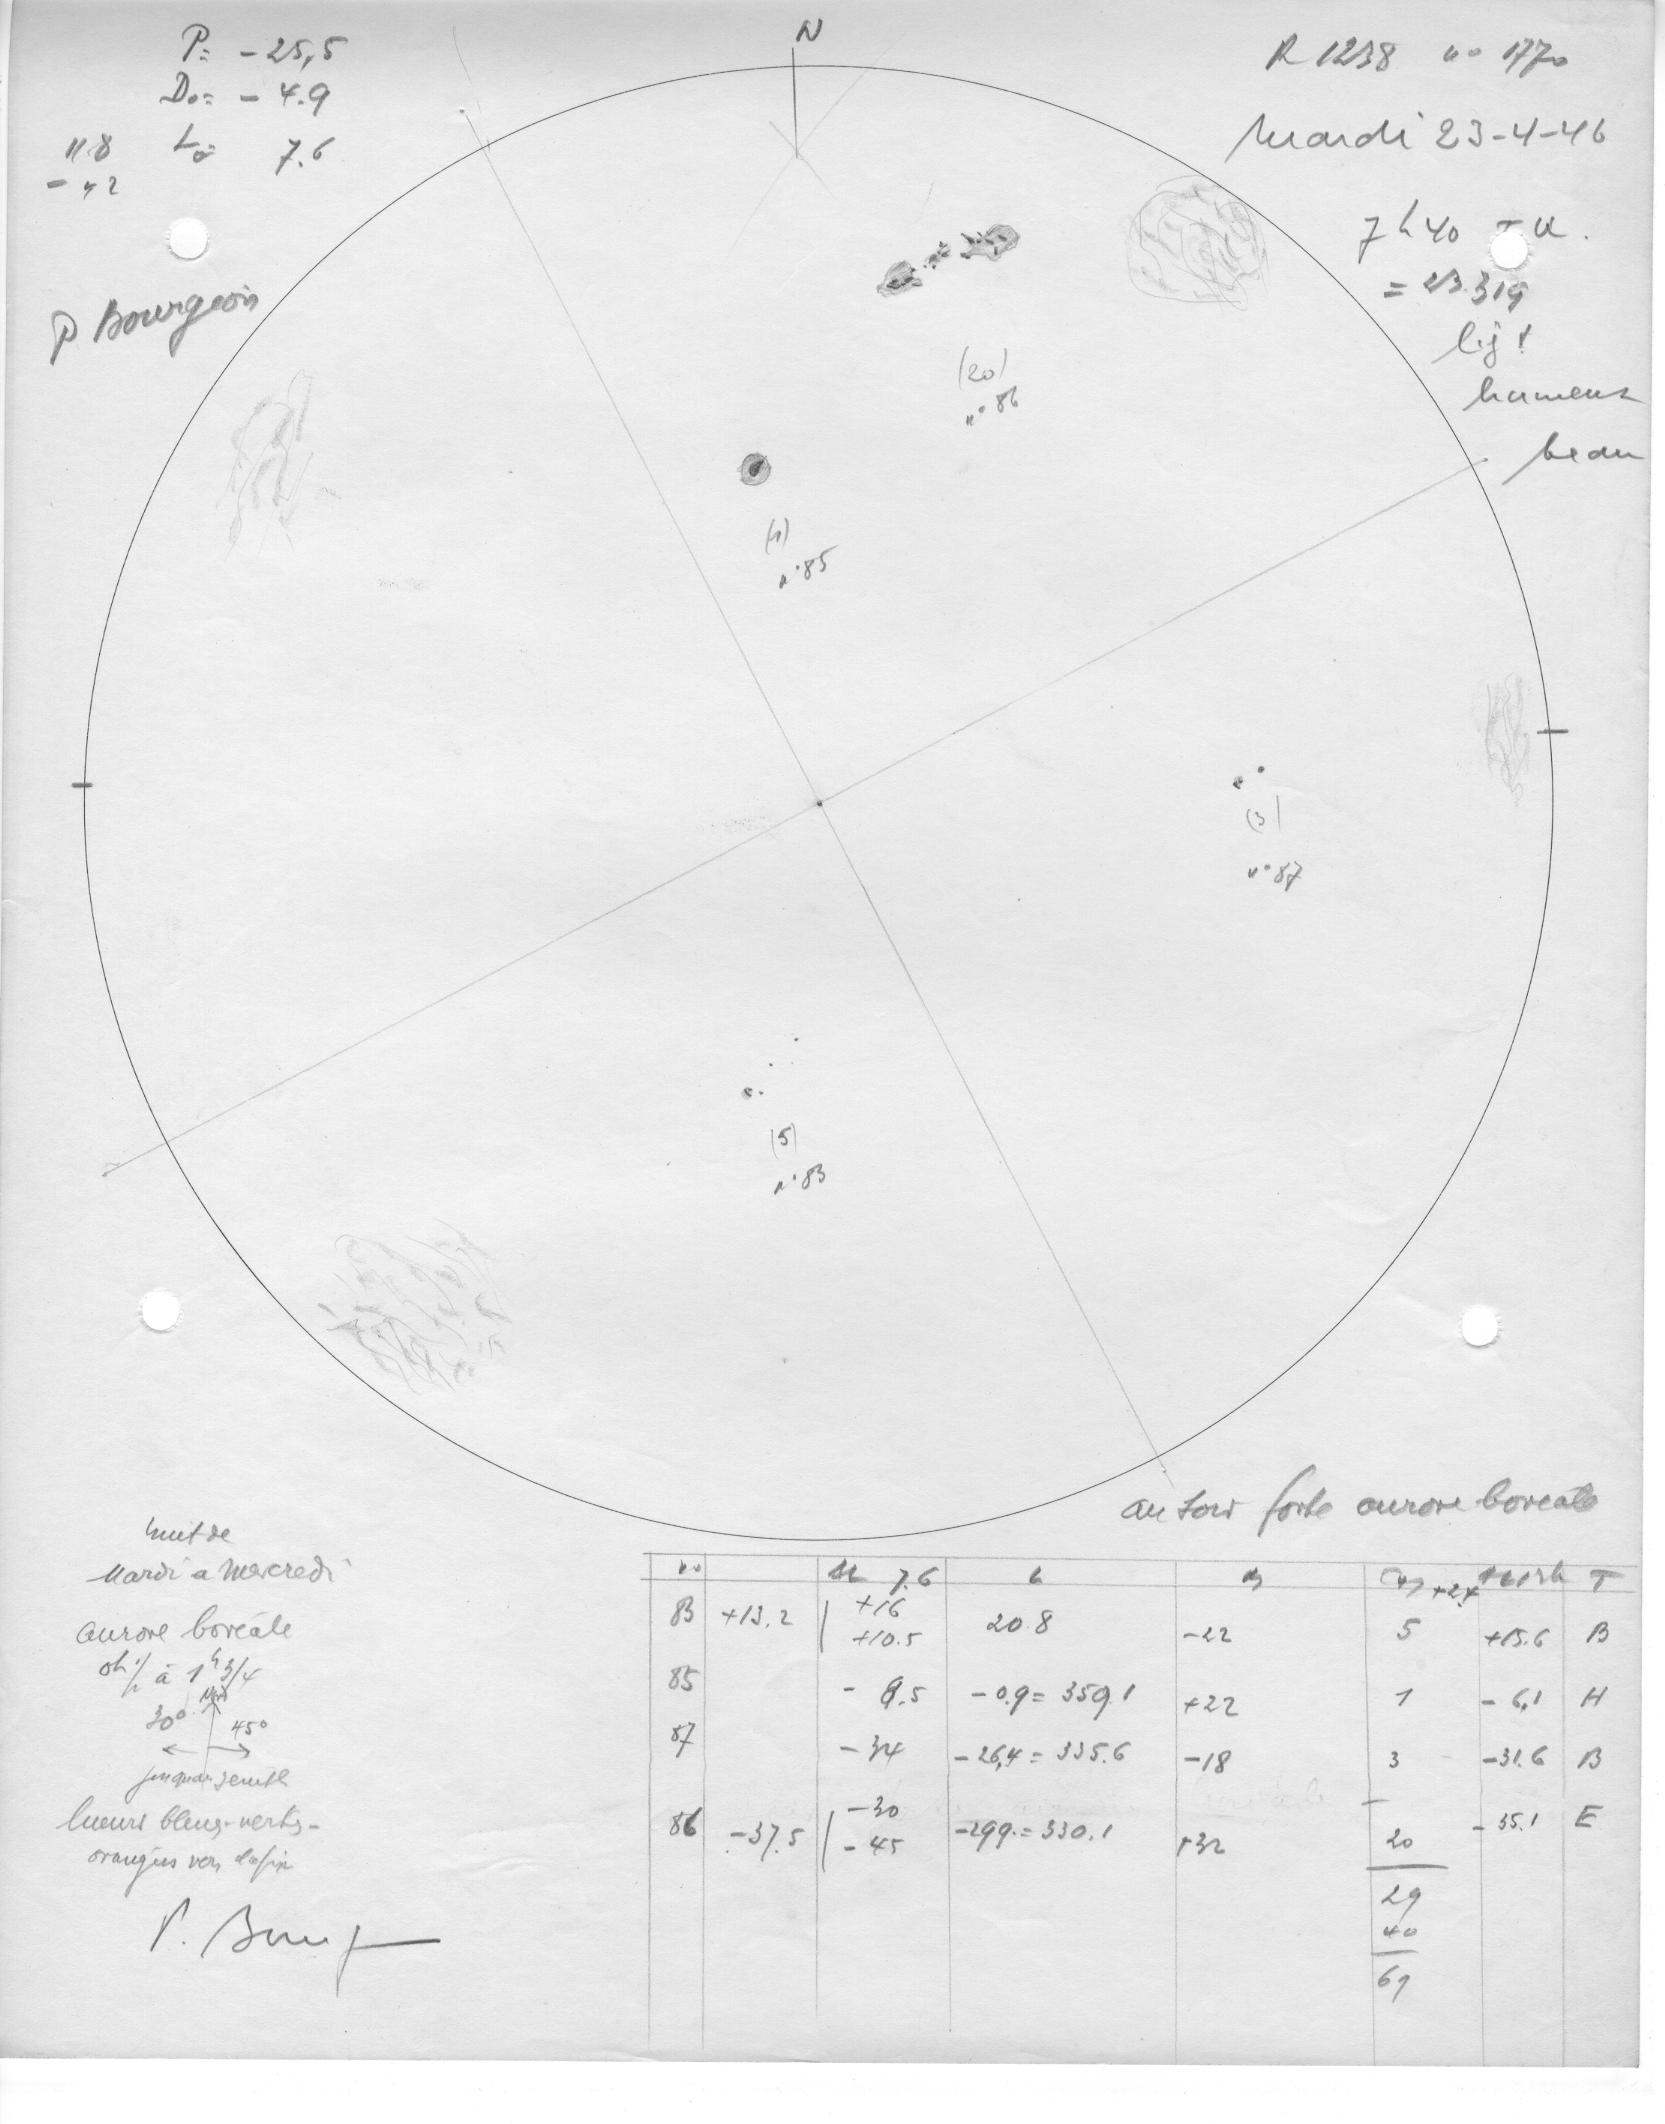 P= -25,5
Do= -4.9
Lo= 7.6
11.8
- 4 2
P Bourgeois
N
R 1238 no 1770
Mardi 23-4-46
7h40 T U.
= 23.319
brumeux
beau
(20)
n° 86
(1)
n° 85
(3)
n° 87
(5)
n° 83
au soir forte aurore boreale
nuit de
Mardi a Mercredi
aurore boréale
à 1h 3/4
Nord
30° 45°
jusqu'au zenith
lueurs bleus-vertes-
oranges vers la fin
P. Bourg
no 7.6 L +2,4 T
83 +13.2 +16 +10.5 20.8 -22 5 +15.6 B
85 -8.5 -0.9= 359.1 +22 1 -6,1 H
87 -34 -26,4= 335.6 -18 3 -31.6 B
86 -37.5 -30 -45 -299.= 330.1 +32 20 -35.1 E
29
40
69